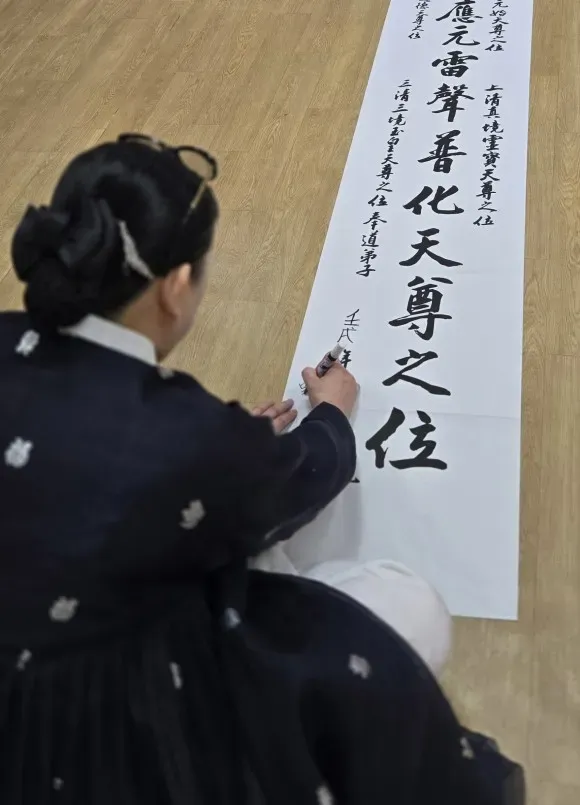 元始天尊之位
上清真境靈寶天尊之位
應元雷聲普化天尊之位
天尊之位
三清三境玉皇天尊之位
奉道弟子
壬戌年